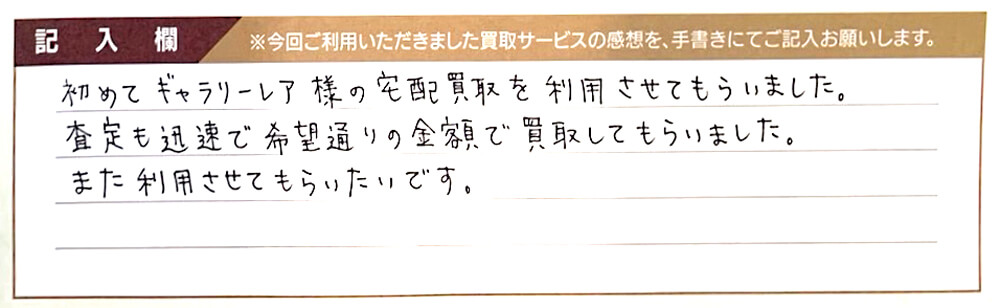 記入欄
※今回ご利用いただきました買取サービスの感想を、手書きにてご記入お願いします。
初めてギャラリーレア様の宅配買取を利用させてもらいました。
査定も迅速で希望通りの金額で買取してもらいました。
また利用させてもらいたいです。